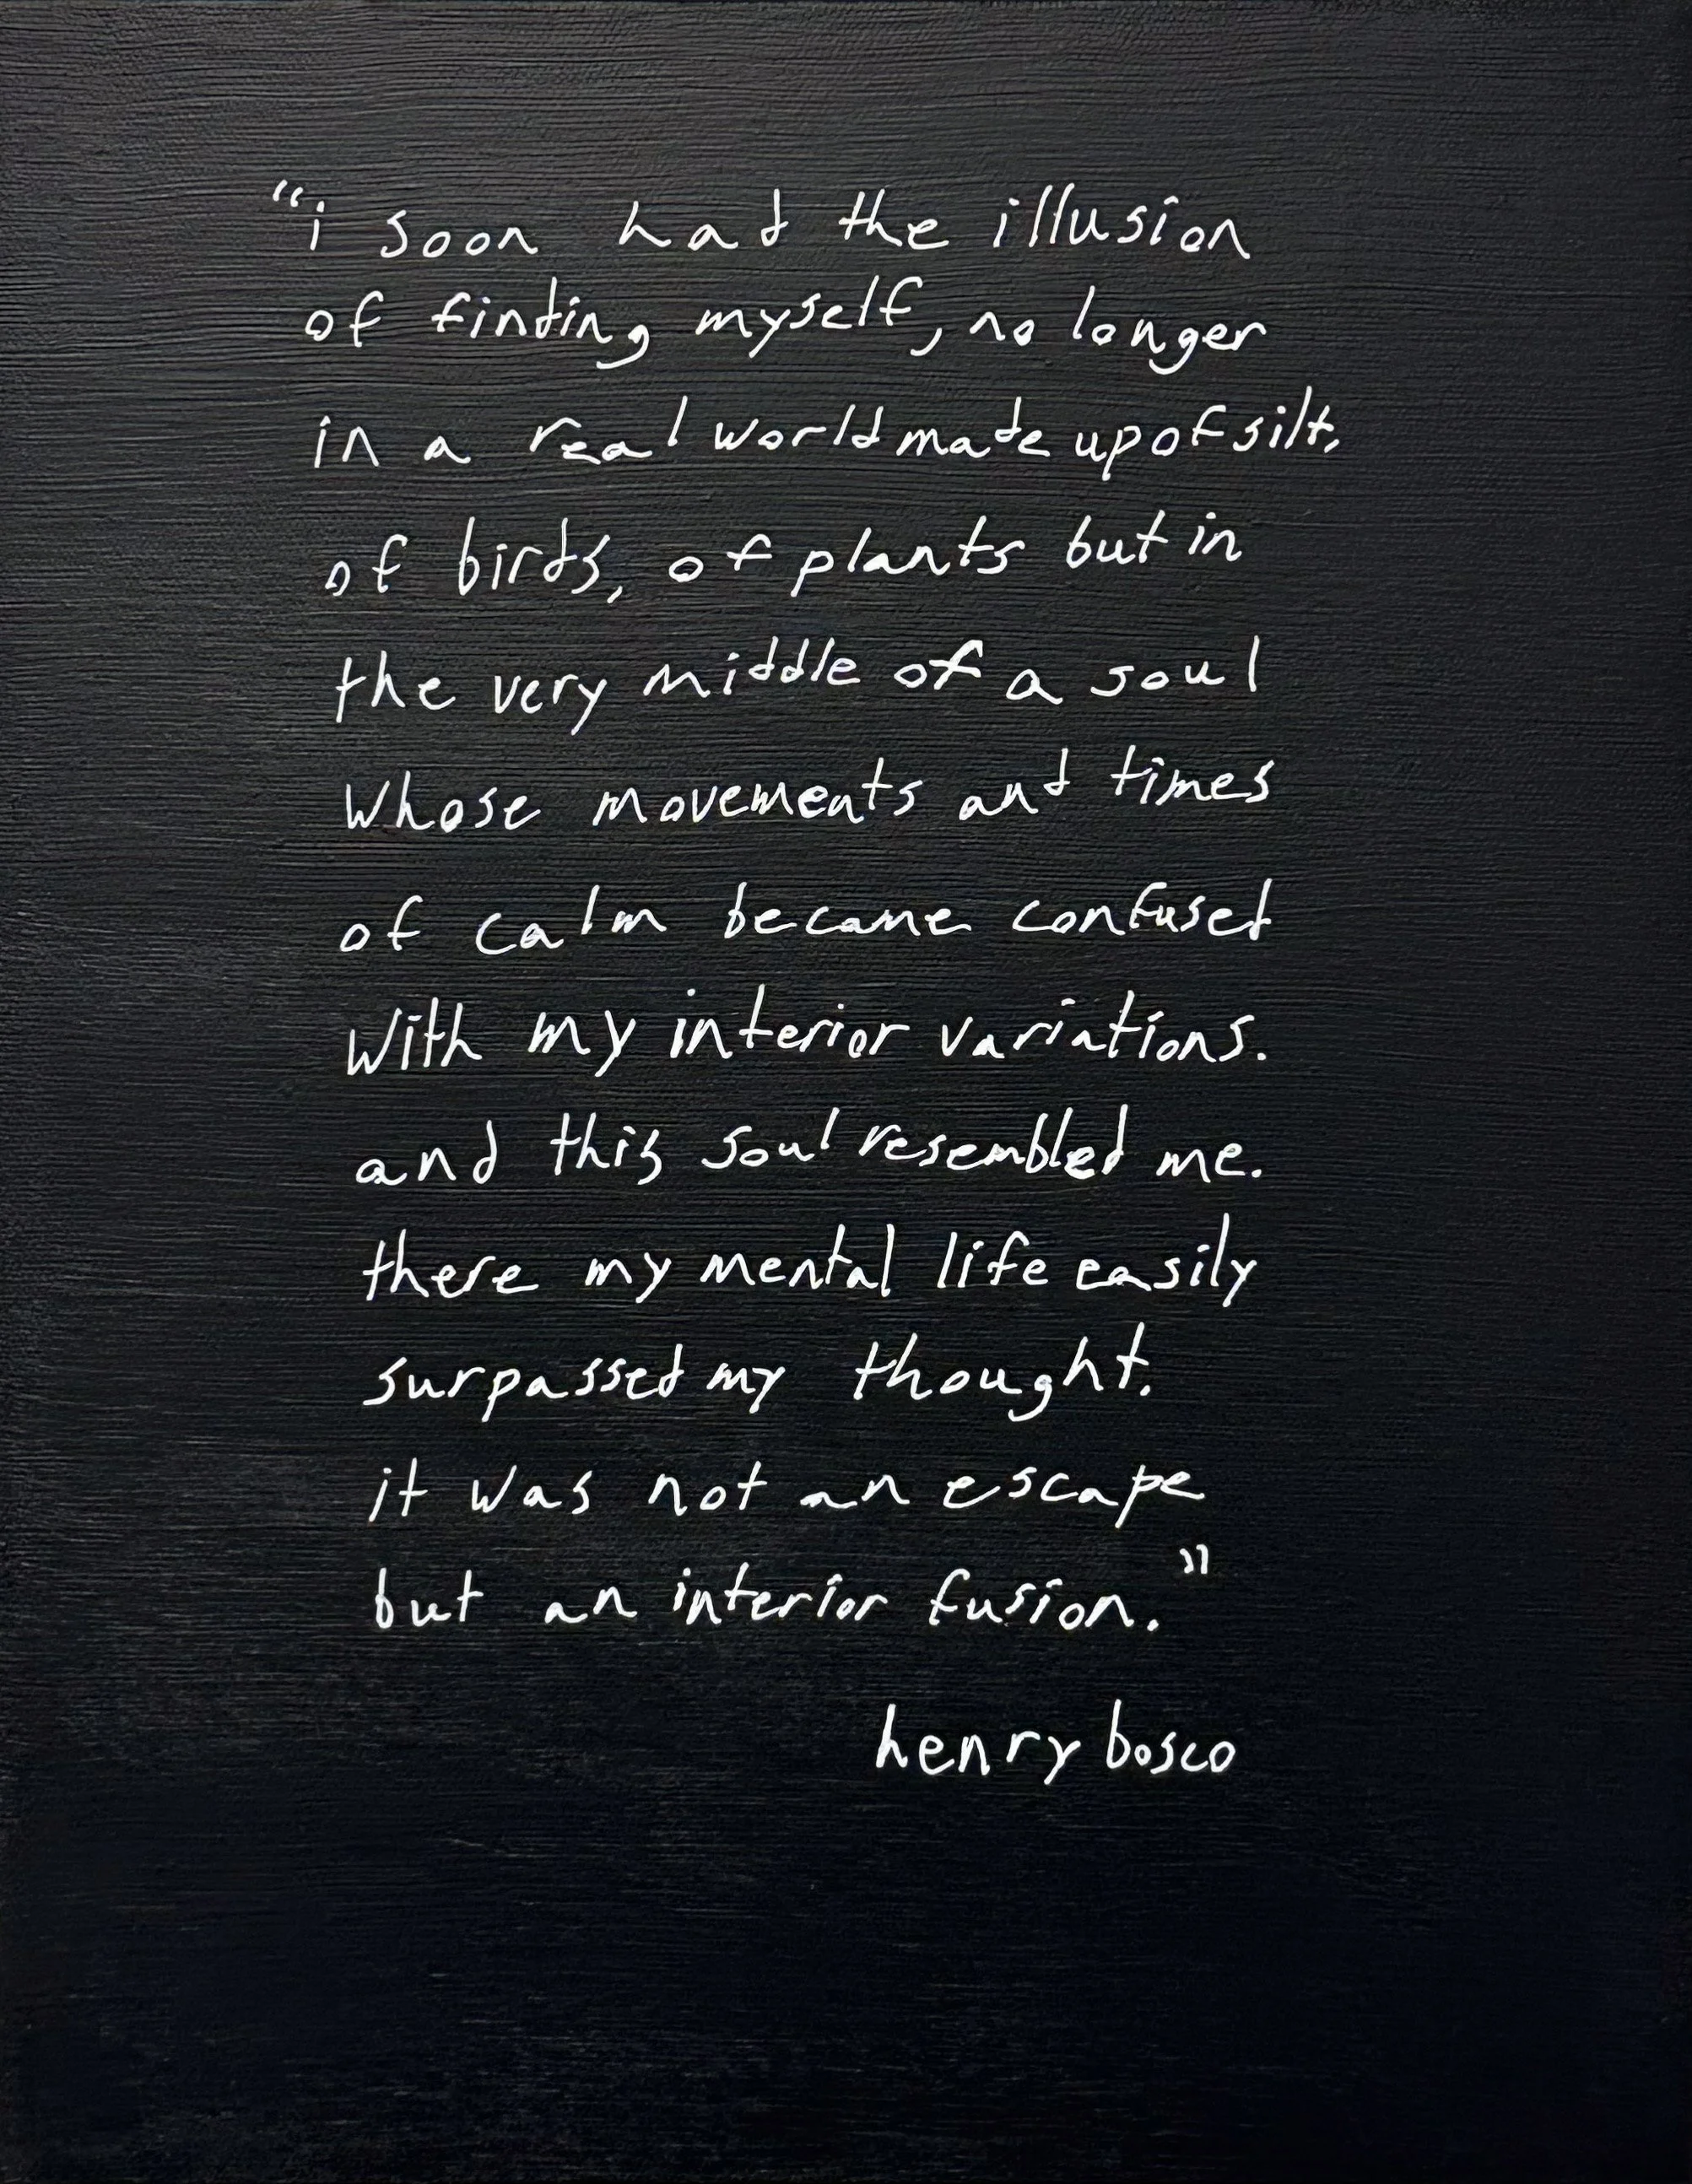 “i soon had the illusion
of finding myself, no longer
in a real world made up of silt,
of birds, of plants but in
the very middle of a soul
whose movements and times
of calm became confused
with my interior variations.
and this soul resembled me.
there my mental life easily
surpassed my thought.
it was not an escape
but an interior fusion.”
henry bosco